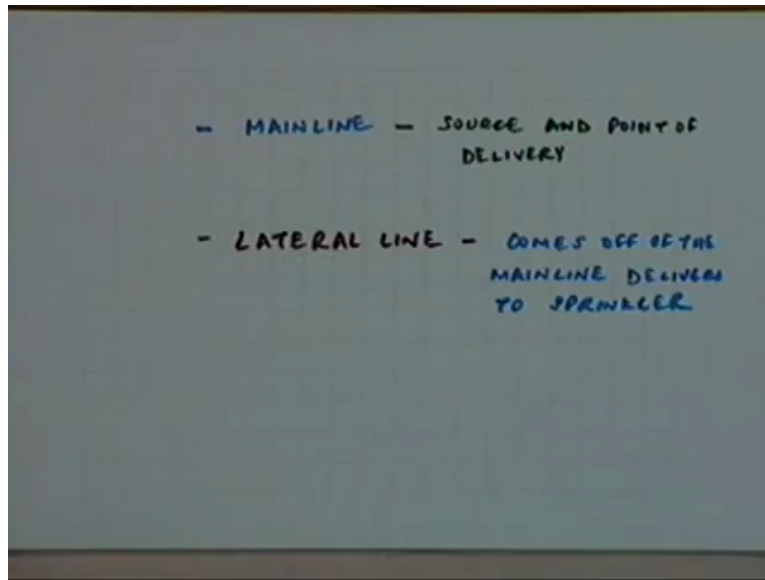 - MAINLINE - SOURCE AND POINT OF
DELIVERY
- LATERAL LINE - COMES OFF OF THE
MAINLINE DELIVERS
TO SPRINKLER